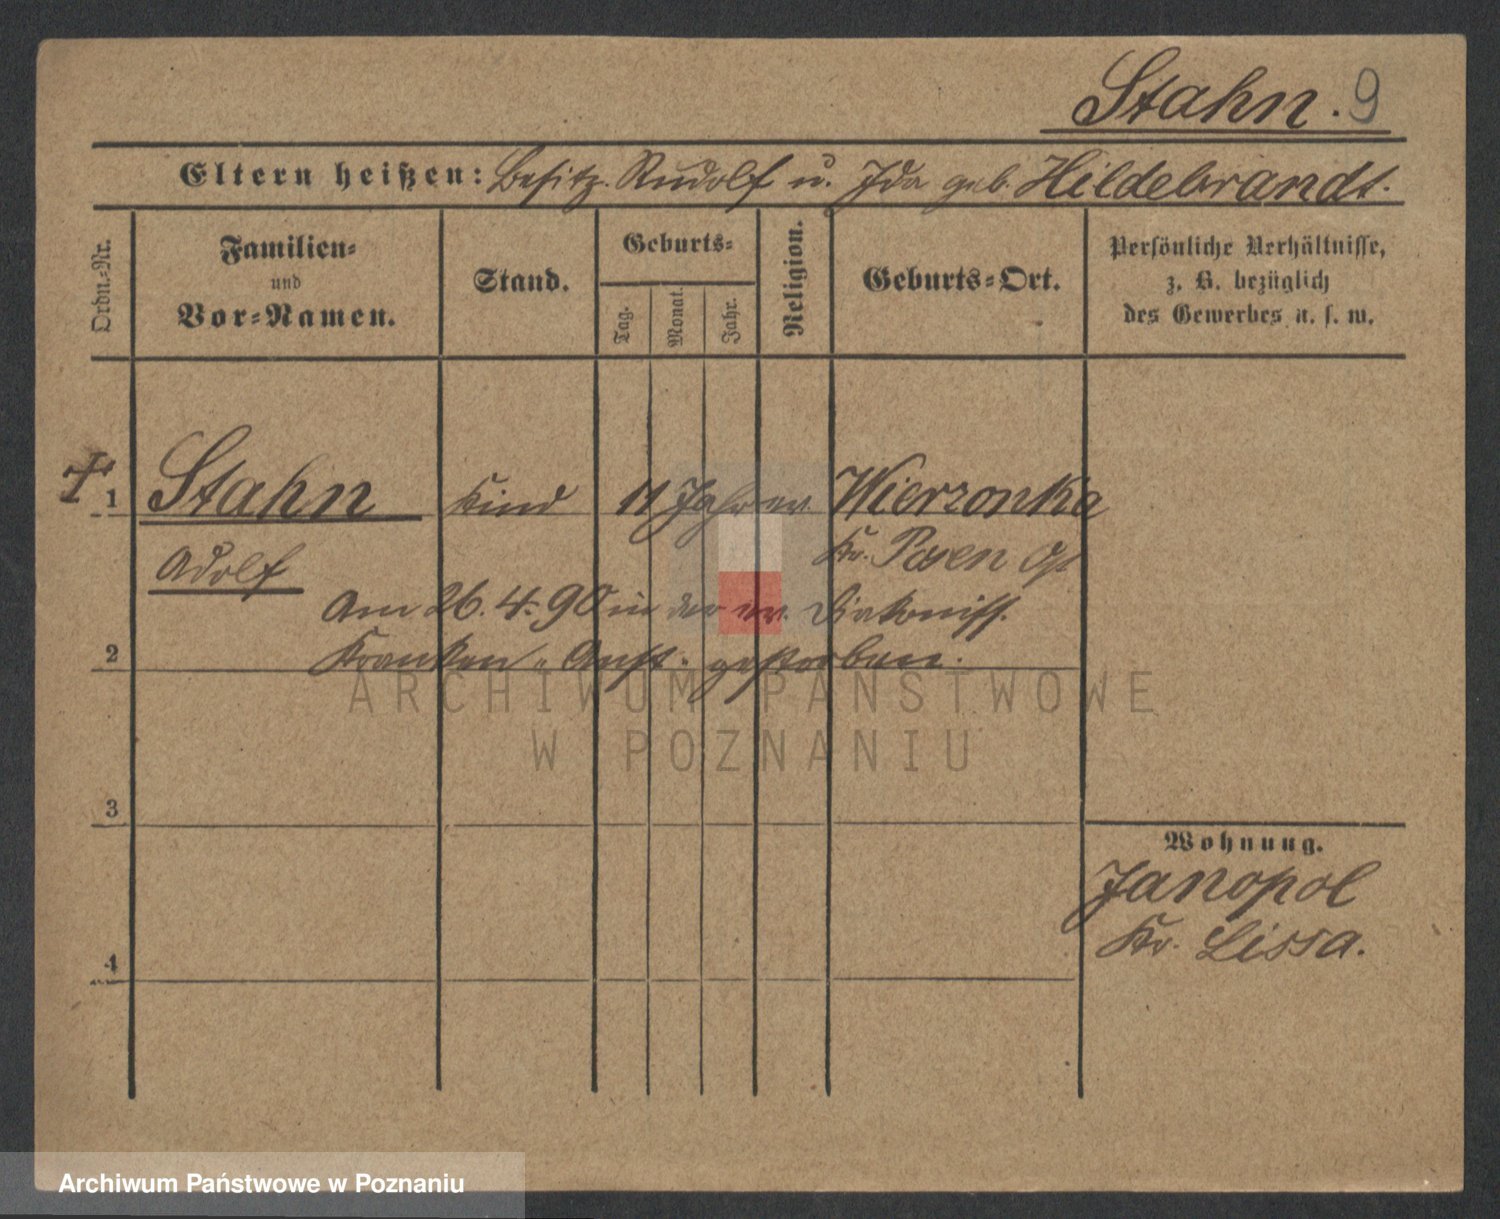 Stahn. 9
Eltern heißen: Besitz. Rudolf u. Ida geb. Hildebrandt.
Ordn.-Nr.
Familien-
und
Vor-Namen.
Stand.
Geburts-
Tag.
Monat.
Jahr.
Religion.
Geburts-Ort.
Persönliche Verhältnisse,
z. B. bezüglich
des Gewerbes u. s. w.
1 Stahn Kind 11 Jahr ev. Wierzonka
Adolf Kr. Posen Ost
Am 26. 4. 90 in der ev. Diakoniss.
2 Kranken-Anst. gestorben.
ARCHIWUM PAŃSTWOWE
W POZNANIU
3
Wohnung.
Janopol
Kr. Lissa.
4
Archiwum Państwowe w Poznaniu